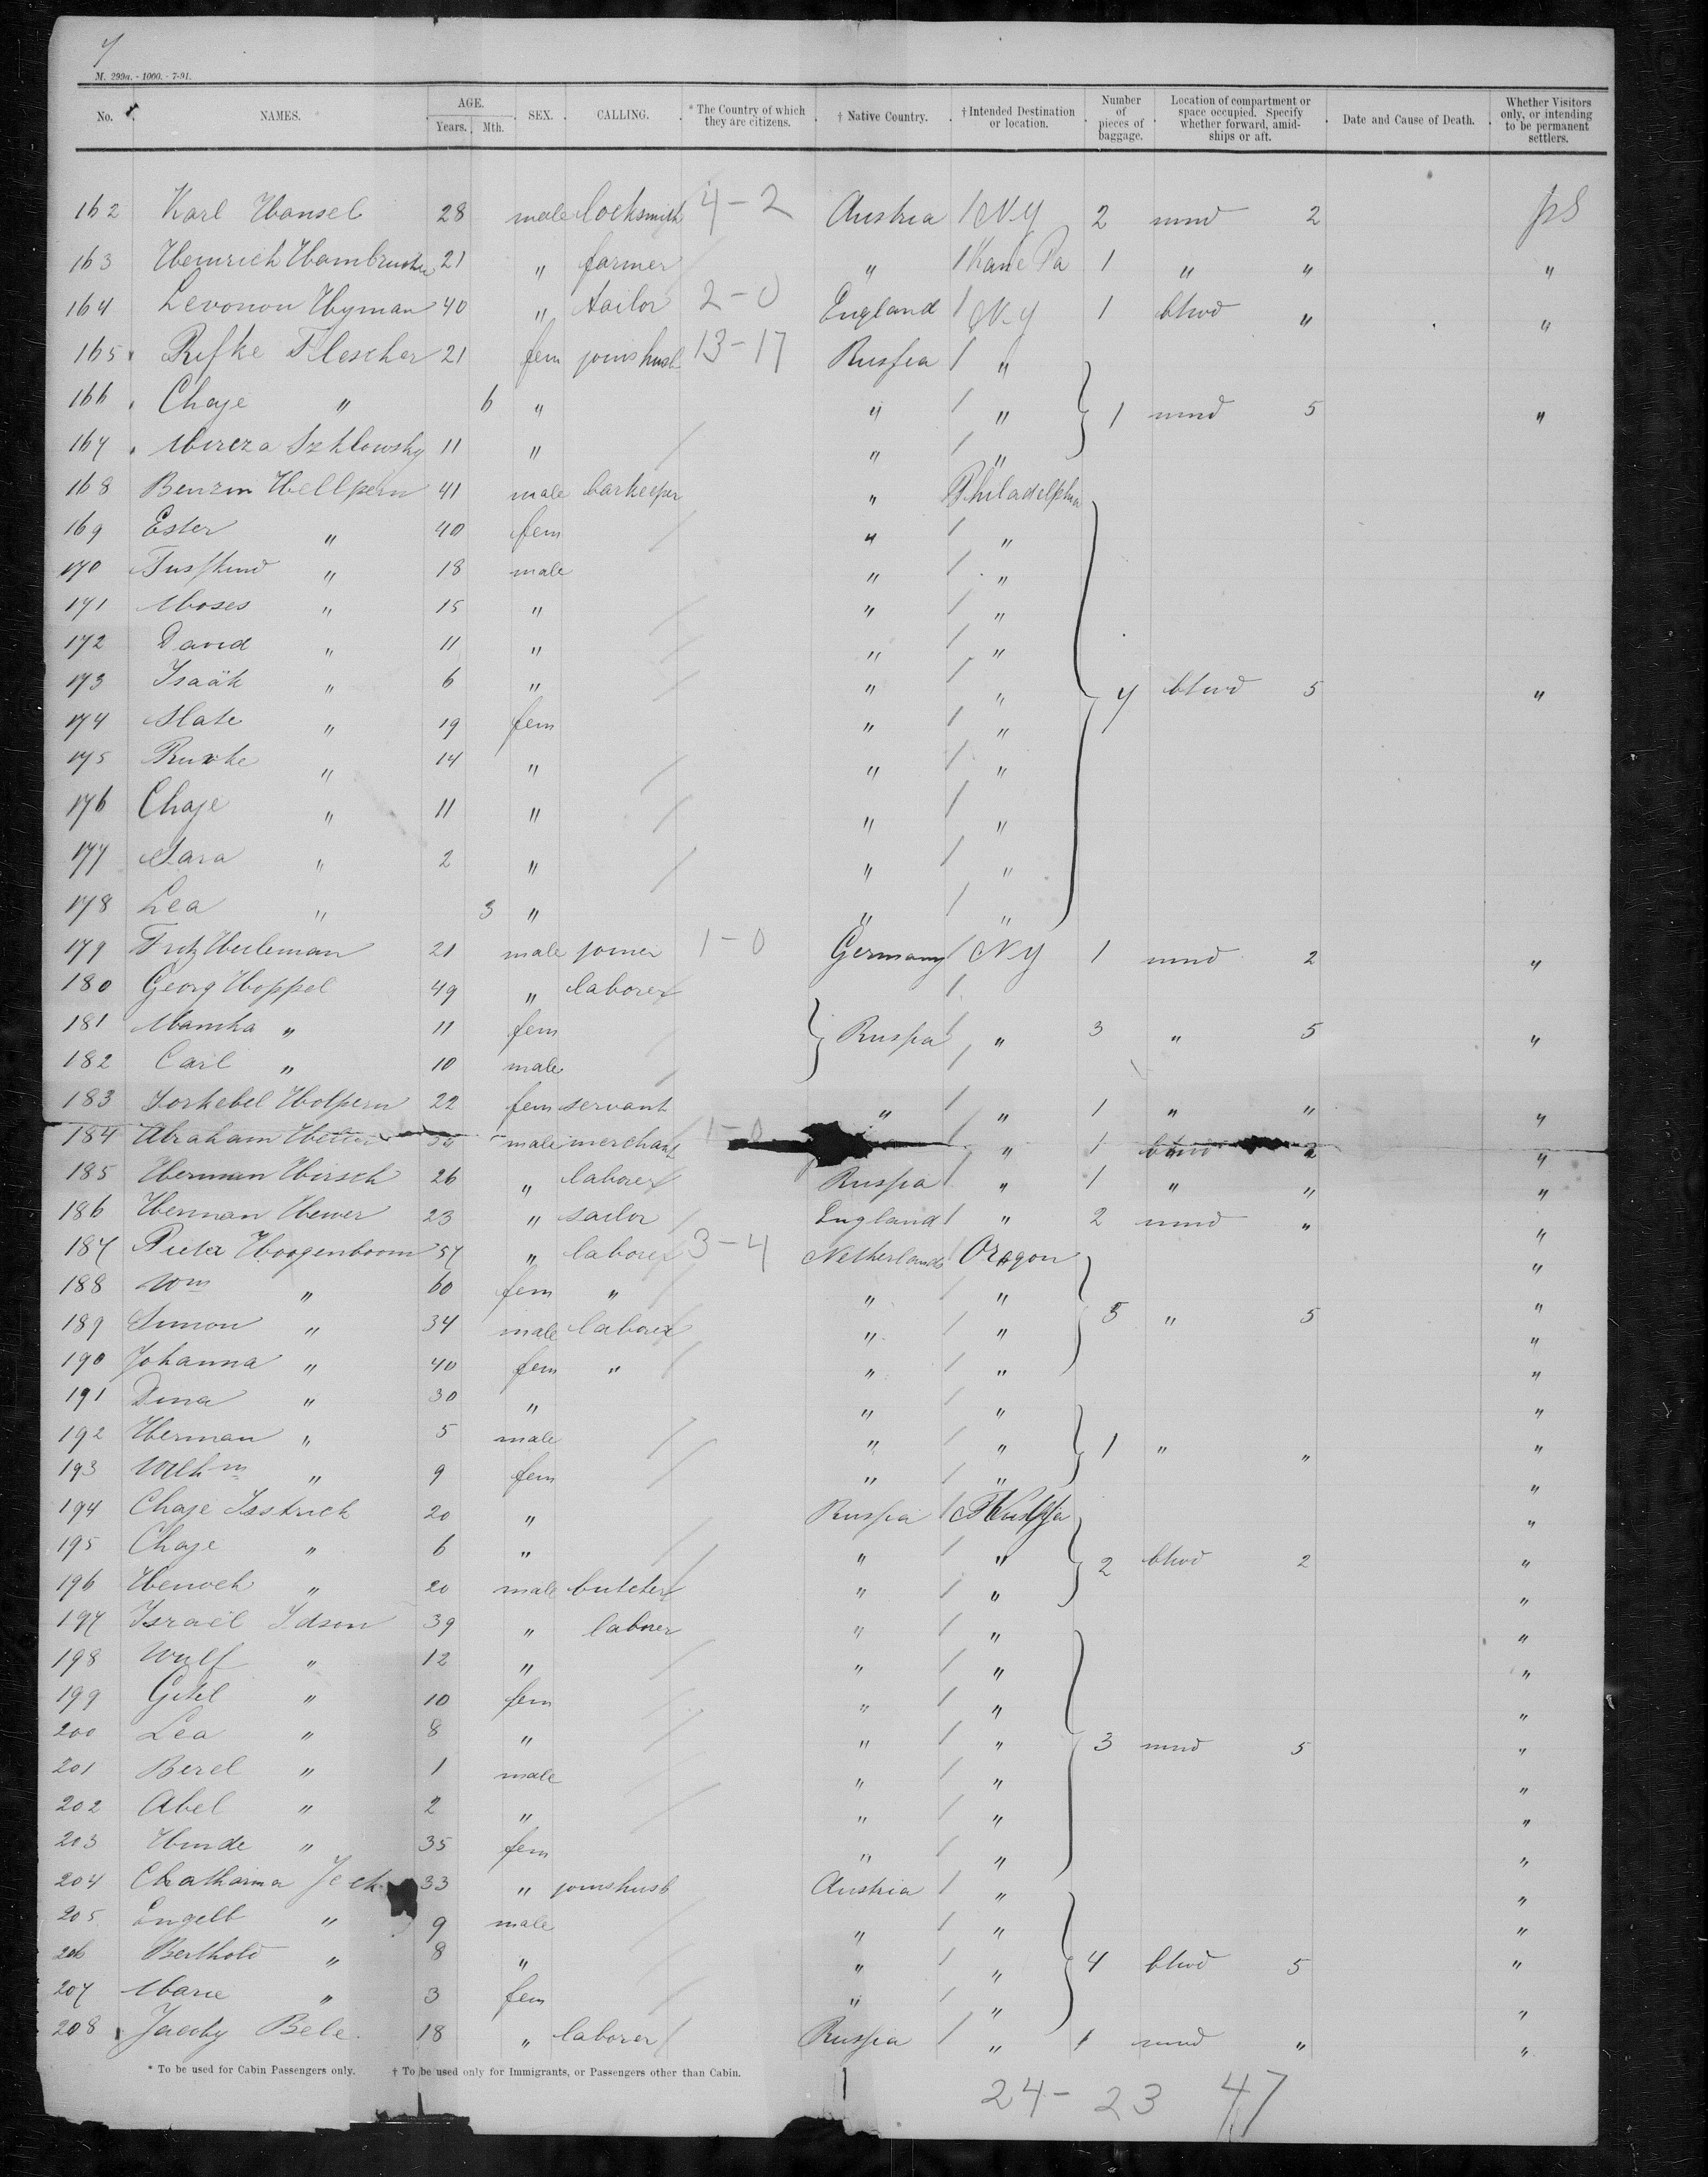 4
M. 299a. - 1000. - 7-91.
No. NAMES. AGE. Years. Mth. SEX. CALLING. * The Country of which they are citizens. † Native Country. † Intended Destination or location. Number of pieces of baggage. Location of compartment or space occupied. Specify whether forward, amidships or aft. Date and Cause of Death. Whether Visitors only, or intending to be permanent settlers.
162 Karl Hansel 28 male locksmith 4-2 Austria / N.Y 2 mmd 2 ps
163 Heinrich 21 " farmer " / Kane Pa 1 " " "
164 Hyman 40 " tailor 2-0 England / N.Y 1 " "
165 Rifke Flescher 21 fem joins husb 13-17 Russia / "
166 Chaje " 6 " " / " 1 mmd 5 "
167 11 " " / "
168 Hellpern 41 male barkeeper " Philadelphia
169 Ester " 40 fem " / "
170 " 18 male " / "
171 Moses " 15 " " / "
172 David " 11 " " / "
173 Isaäk " 6 " " / " 7 5 "
174 Slate " 19 fem " / "
175 " 14 " " / "
176 Chaje " 11 " " / "
177 Sara " 2 " " / "
178 Lea " 3 " " / "
179 Fritz 21 male joiner 1-0 Germany / N.Y 1 mmd 2 "
180 Georg Hoppel 49 " laborer /
181 " 11 fem Russia / " 3 " 5 "
182 Carl " 10 male /
183 Holpern 22 fem servant " / " 1 " " "
184 Abraham male merchant 1-0 / " 1 2 "
185 Herman Hirsch 26 " laborer Russia / " 1 " " "
186 Herman 23 " sailor England / " 2 mmd " "
187 Pieter Hoogenboom 57 " laborer 3-4 Netherlands Oregon "
188 Wm " 60 fem " " / " "
189 Simon " 34 male laborer " / " 5 " 5 "
190 Johanna " 40 fem " " / " "
191 Dina " 30 " " / " "
192 Herman " 5 male " / " 1 " " "
193 Wilhm " 9 fem " / " "
194 Chaje Isstrich 20 " Russia / "
195 Chaje " 6 " " / " 2 2 "
196 Henoch " 20 male butcher " / " "
197 Israël Idson 39 " laborer " / " "
198 Wulf " 12 " " / " "
199 Gitel " 10 fem " / " "
200 Lea " 8 " " / " 3 mmd 5 "
201 Berel " 1 male " / " "
202 Abel " 2 " " / " "
203 Hinde " 35 fem " / " "
204 Chatharina 33 " joins husb Austria / " "
205 Engelb " 9 male " / " "
206 Berthold " 8 " " / " 4 5 "
207 Marie " 3 fem " / " "
208 Bele 18 " laborer Russia / " 1 mmd " "
* To be used for Cabin Passengers only. † To be used only for Immigrants, or Passengers other than Cabin.
24- 23 47